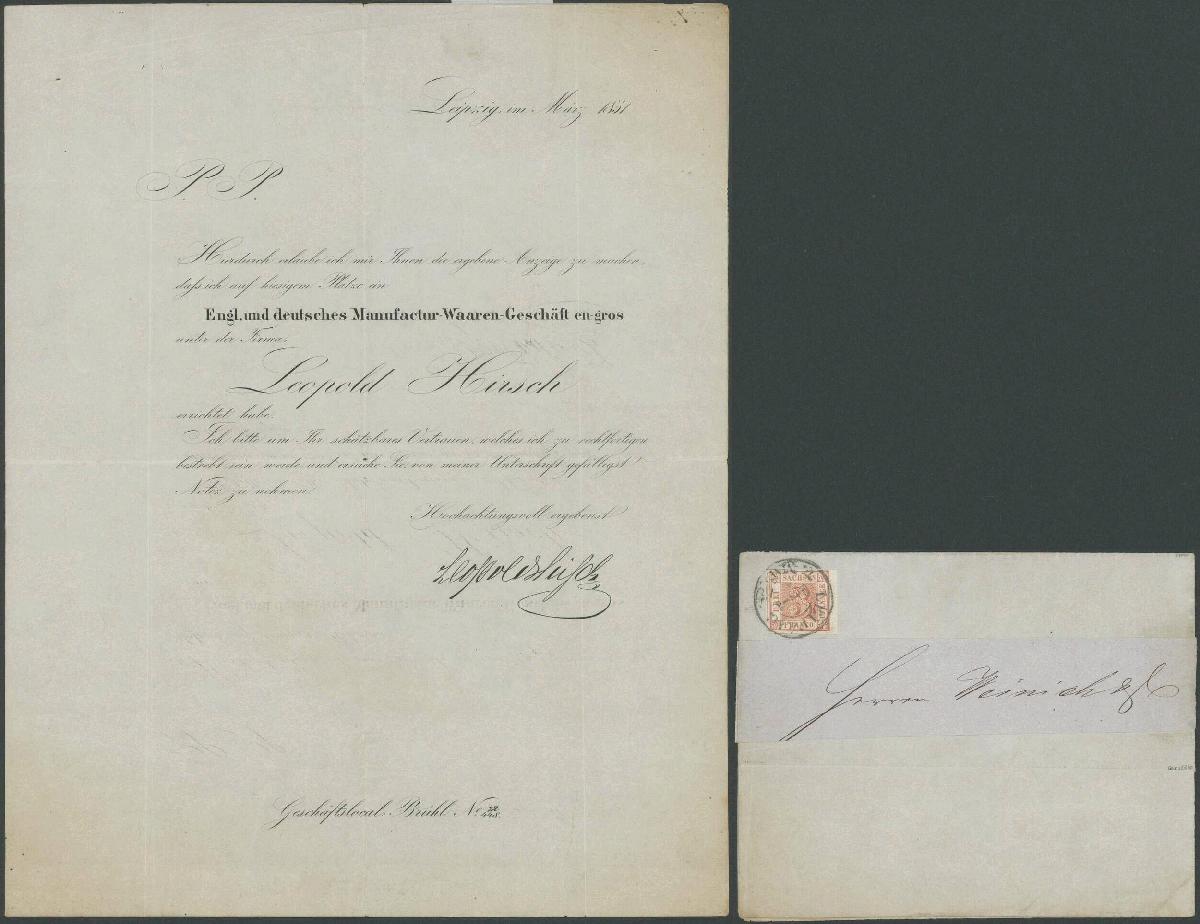 Leipzig, im März 1851
P. P.
Hierdurch erlaube ich mir Ihnen die ergebene Anzeige zu machen,
daß ich auf hiesigem Platze ein
Engl. und deutsches Manufactur-Waaren-Geschäft en-gros
unter der Firma:
Leopold Hirsch
errichtet habe.
Ich bitte um Ihr schätzbares Vertrauen, welches ich zu rechtfertigen
bestrebt sein werde und ersuche Sie, von meiner Unterschrift gefälligst
Notiz zu nehmen.
Hochachtungsvoll ergebenst
Leopold Hirsch
Geschäftslocal: Brühl No.
SACHSEN
3
FRANCO
Herren Weinich &